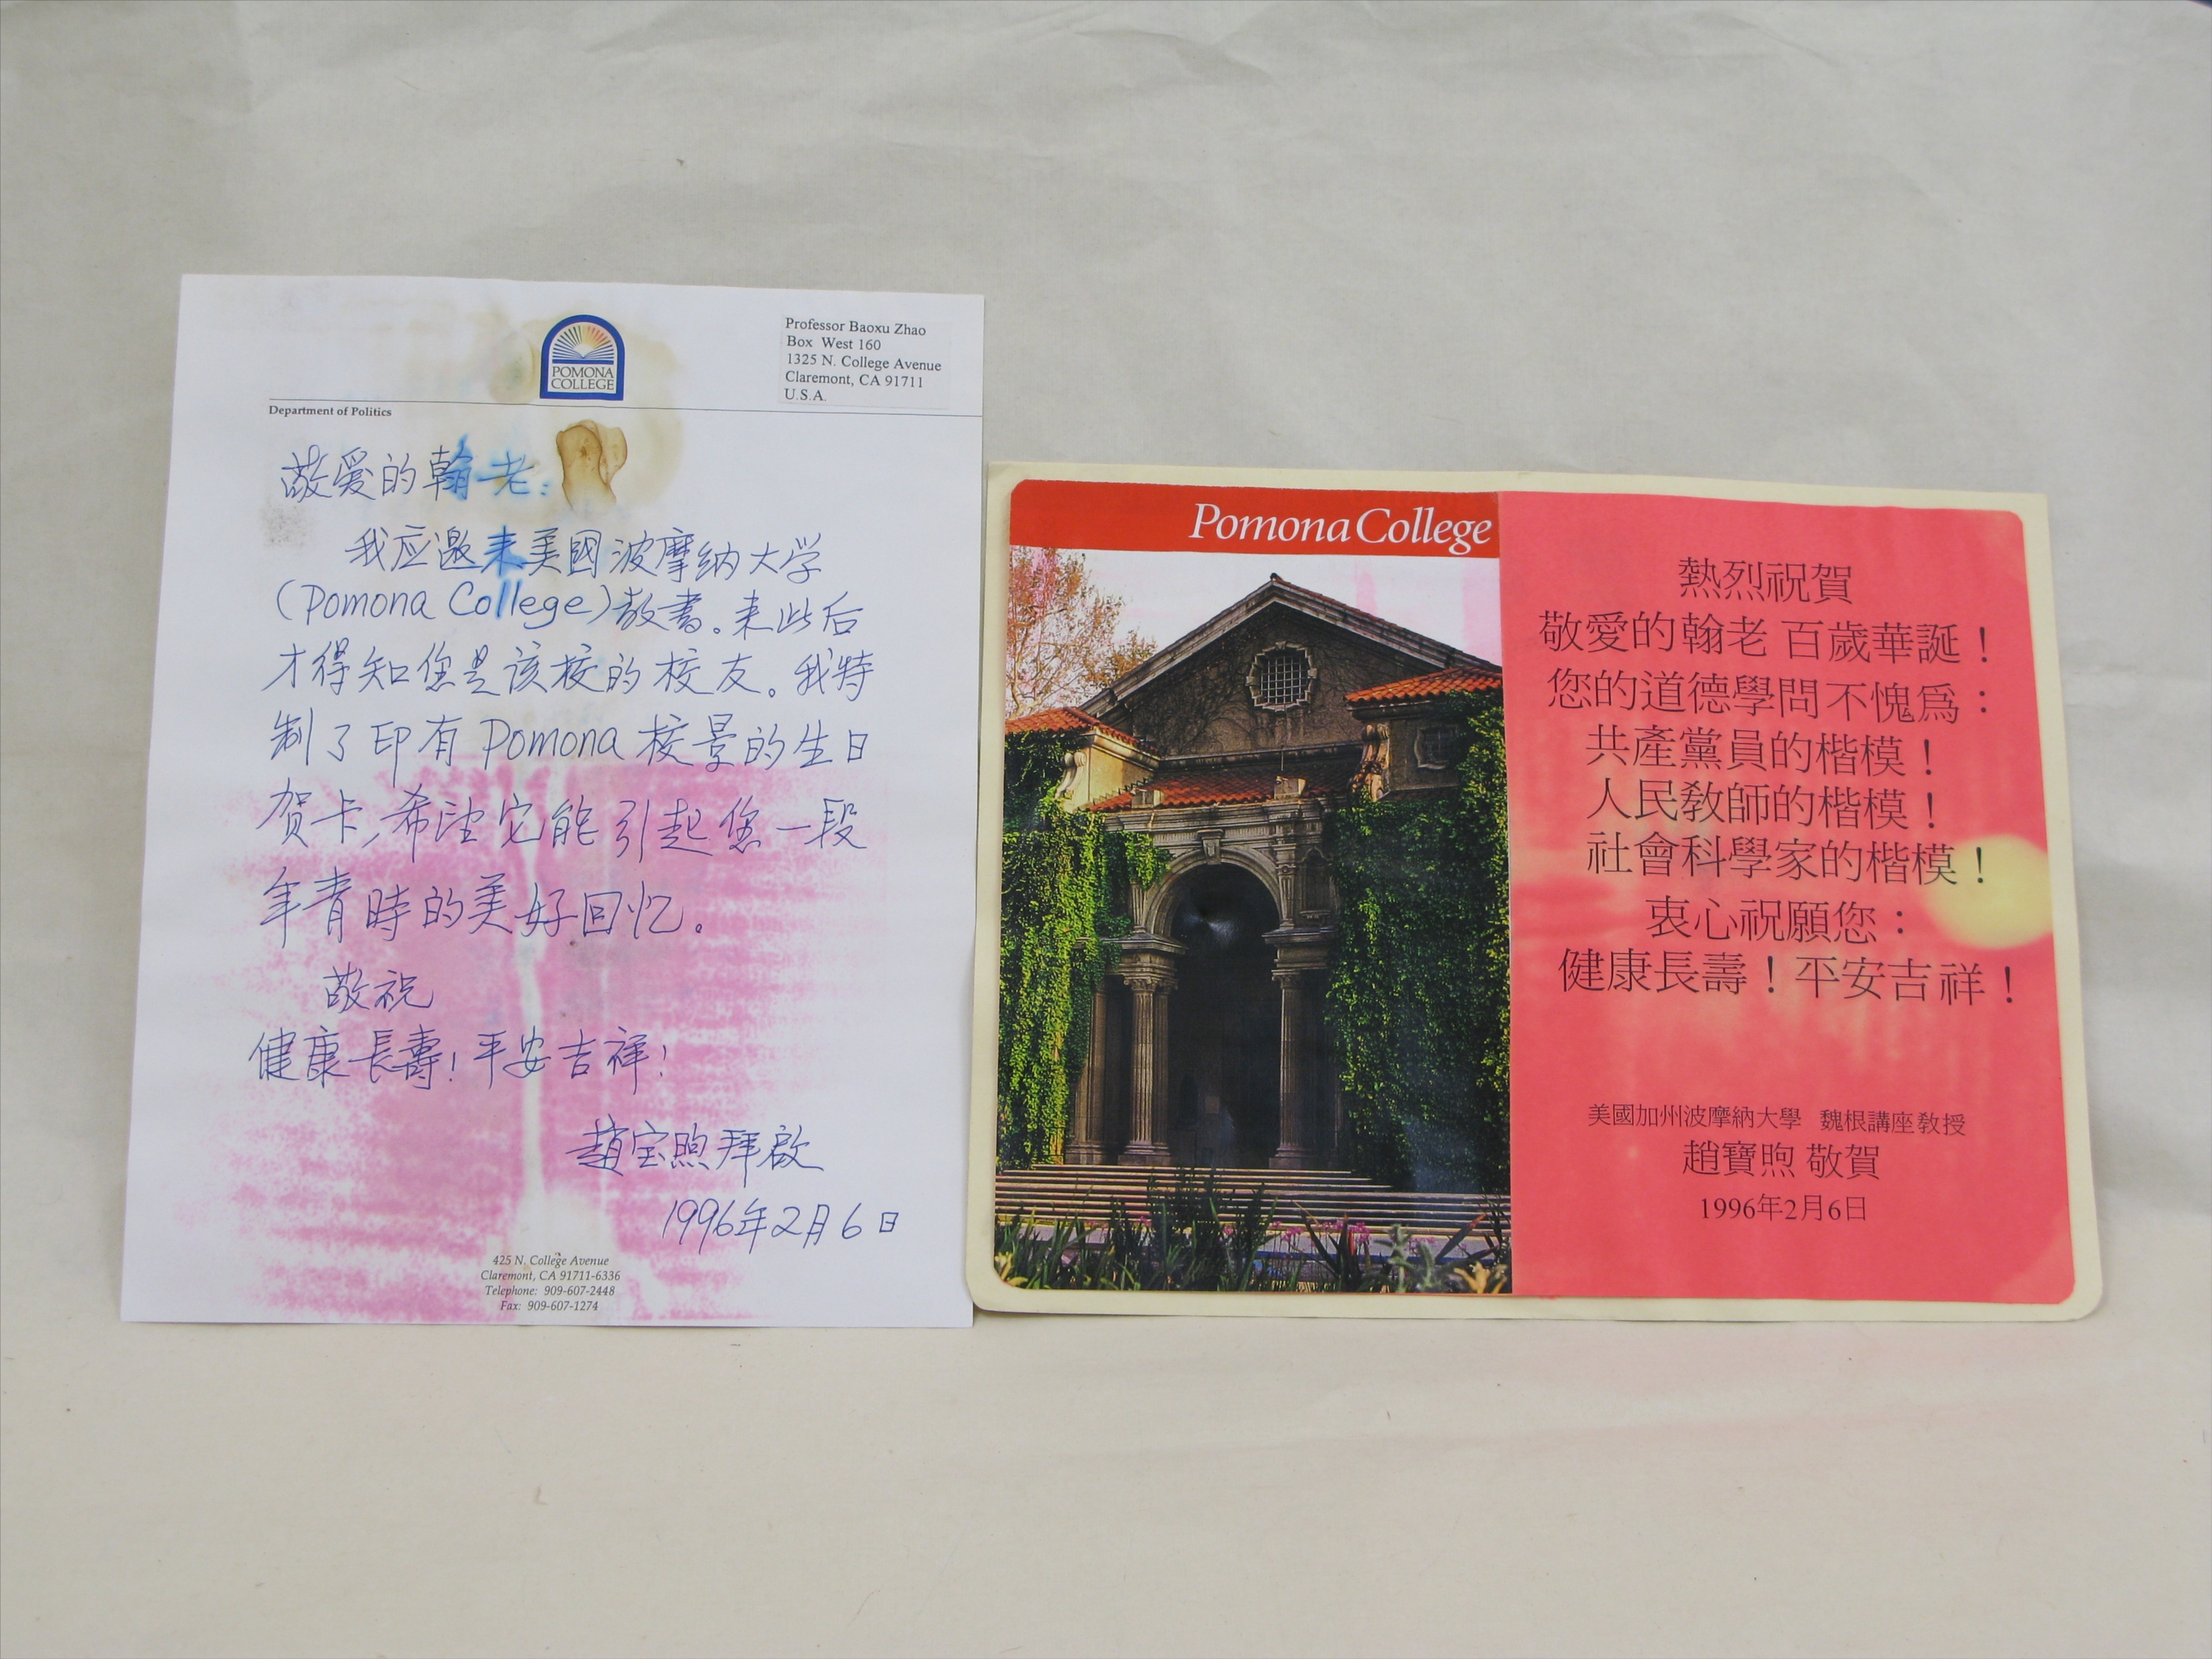 POMONA
COLLEGE
Professor Baoxu Zhao
Box West 160
1325 N. College Avenue
Claremont, CA 91711
U.S.A.
Department of Politics
敬爱的翰老：
我应邀来美國波摩纳大学
(Pomona College)教書。来此后
才得知您是该校的校友。我特
制了印有Pomona校景的生日
贺卡，希望它能引起您一段
年青時的美好回忆。
敬祝
健康長壽！平安吉祥！
趙宝煦拜啟
1996年2月6日
425 N. College Avenue
Claremont, CA 91711-6336
Telephone: 909-607-2448
Fax: 909-607-1274
Pomona College
熱烈祝賀
敬愛的翰老 百歲華誕！
您的道德學問不愧爲：
共產黨員的楷模！
人民教師的楷模！
社會科學家的楷模！
衷心祝願您：
健康長壽！平安吉祥！
美國加州波摩納大學 魏根講座教授
趙寶煦 敬賀
1996年2月6日